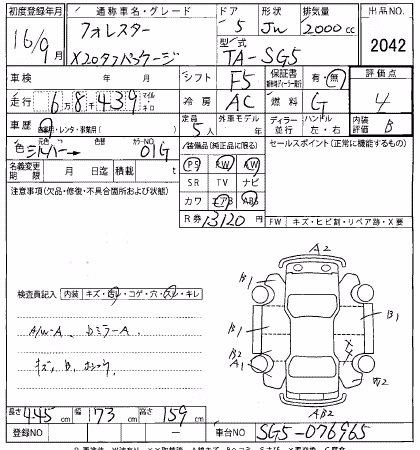 初度登録年月 通称車名・グレード ドア 形状 排気量 出品NO.
16/9月 フォレスター 5 Jw 2000cc 2042
X20タフパッケージ 型式 TA-SG5
車検 年 月 シフト F5 保証書 有・無 評価点
走行 6万8千439 マイル キロ 冷房 AC 燃料 G 4
車歴 自家用・レンタ・事業用( ) 定員 5人 外車モデル 年 ディーラー 並行 ハンドル 左・右 内装評価 B
色 シルバー 元色 色替 カラーNO. 01G
装備品(純正品に限る) セールスポイント(正常に機能するもの)
名義変更期限 月 日迄 積載 t PS PW AW
注意事項(欠品・修復・不具合箇所および状態) SR TV ナビ
カワ エアB ABS
R券 13120円 FW キズ・ヒビ割・リペア跡・X要
A2
検査員記入 内装 キズ・汚レ・コゲ・穴・スレ・キレ
B1 B1 B1
A/W-A DミラーA
B2 A1 X
キズ, B,
W2
AB2
長さ 445cm 幅 173cm 高さ 159cm
登録NO ー 車台NO SG5-076965